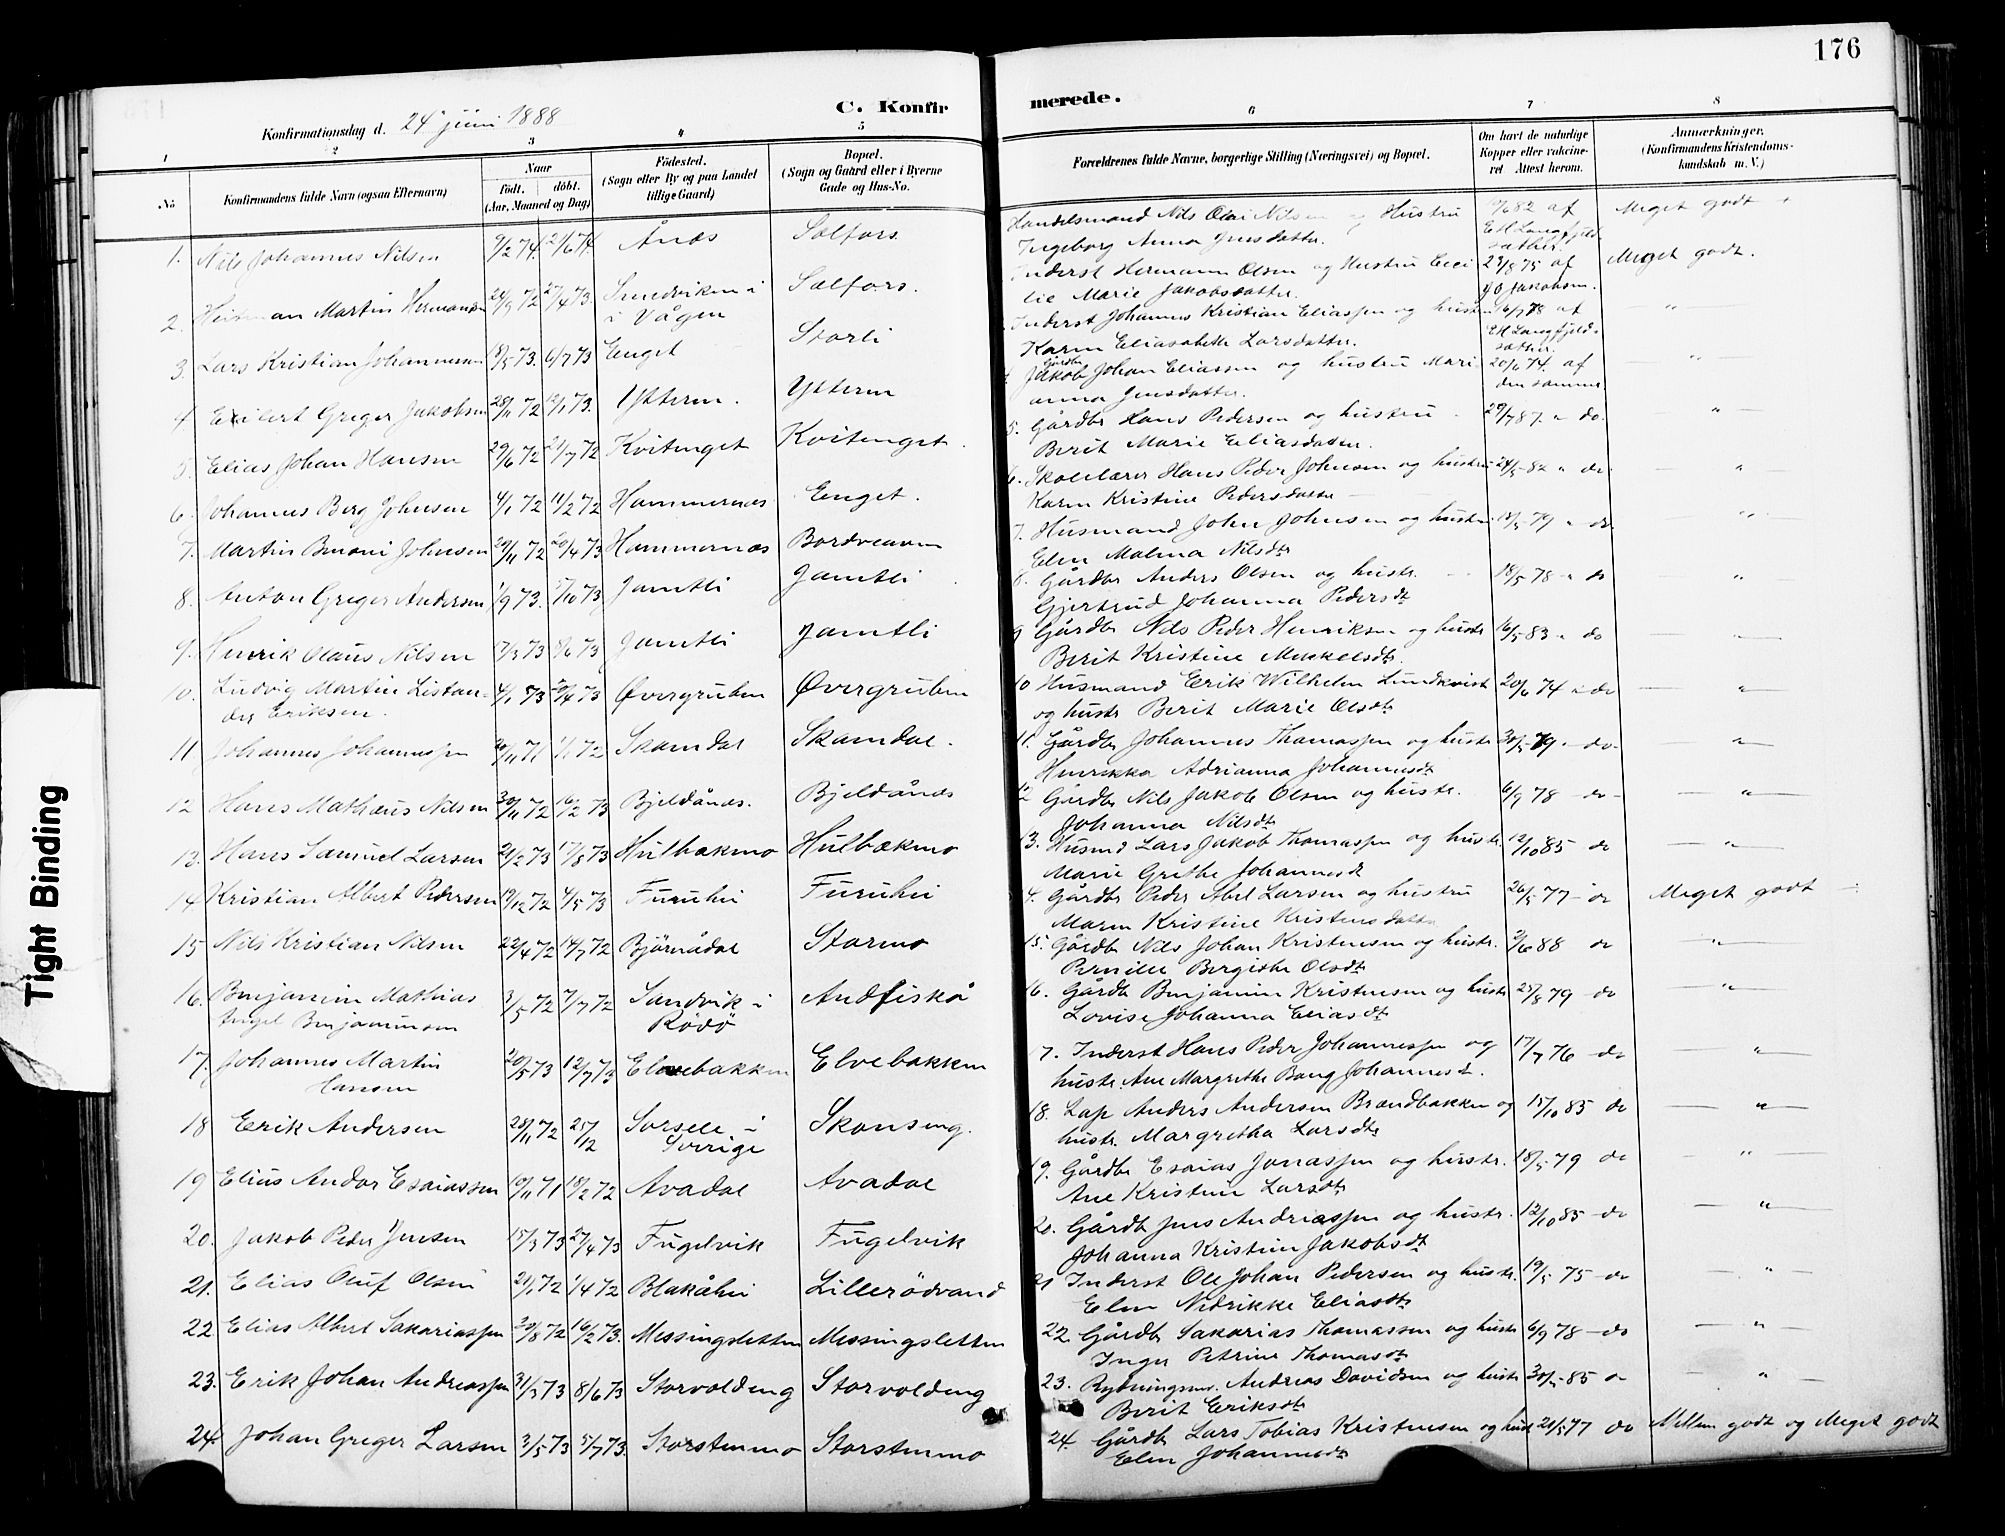 176
C. Konfirmerede.
Konfirmationsdag d. 24de juni 1888
1 2 3 4 5 6 7 8
No
Konfirmandens fulde Navn (ogsaa Efternavn)
Naar
født. døbt.
(Aar, Maaned og Dag)
Fødested.
(Sogn eller By og paa Landet
tillige Gaard)
Bopæl.
(Sogn og Gaard eller i Byerne
Gade og Hus-No.
Forældrenes fulde Navne, borgerlige Stilling (Næringsvei) og Bopæl.
Om havt de naturlige
Kopper eller vakcine-
ret Attest herom.
Anmærkninger.
(Konfirmandens Kristendoms-
kundskab m. V.)
1. Nils Johannes Nilsen 9/2 74. 21/6 74. Ånæs Selfors Handelsmand Nils Olai Nilsen og Hustru
Ingeborg Anna Jensdatter. af E H Langfjeld-
sæther. Meget godt
2. Martin Hermansen 27/4 73. Smedviken i
i Vågen Selfors. Inderst Hermann Olsen og Hustru Ceci
lie Marie Jakobsdatter. 23/8 75 af
J O Jakobsen. Meget godt.
3. Lars Kristian Johannesen 18/5 73. 6/7 73 Enget Storli Inderst Johannes Kristian Eliassen og hustru
Karen Eliasabeth Larsdatter. 16/7 78 af
E H Langfjeld-
sæther. "
4 Eilert Greger Jakobsen 28/11 72 12/1 73. Ytteren. Ytteren Gårdbr Jakob Johan Eliassen og hustru Mari-
anna Jensdatter. 20/6 74. af
den samme "
5. Elias Johan Hansen 29/6 72 21/7 72 Kvitenget Kvitenget. 5. Gårdbr Hans Pedersen og hustru
Berit Marie Eliasdatter. 29/7 87. " do. "
6. Johannes Berg Johnsen 4/1 72 11/2 72 Hammernæs Enget. 6. Skolelærer Hans Peder Johnsen og hustru
Karen Kristine Pedersdatter 24/5 82 " do "
7. Martin Benoni Johnsen 29/11 72 20/4 73 Hammernæs 7. Husmand John Johnsen og hustru
Elen Malena Nilsdtr 18/5 79 " do "
8. Anton Greger Andersen 1/9 73. 5/10 73 Jamtli Jamtli 8. Gårdbr Anders Olsen og hustr.
Gjertrud Johanna Pedersdt 18/5 78 " do "
9. Henrik Olaus Nilsen 17/3 73 8/6 73 Jamtli Jamtli 9 Gårdbr Nils Peder Henriksen og hustr
Berit Kristine Mikkelsdtr. 16/5 83 " do "
10. Ludvig Martin
Eriksen. 4/1 73 73 Øvergruben Øvergruben 10 Husmand Erik Wilhelm Lundkvist
og hustr Berit Marie Olsdtr 20/6 74 " do "
11 Johannes Johannessen 20/11 71 1/1 72 Skamdal Skamdal. 11. Gårdbr Johannes Thomassen og hustr
Henrikka Adrianna Johannesdt 30/5 79 " do- "
12 Hans Mathæus Nilsen 30/11 72 16/2 73 Bjeldånæs. Bjeldånæs 12 Gårdbr Nils Jakob Olsen og hustr.
Johanna Nilsdtr 6/9 78 - do- "
13. Hans Samuel Larsen 21/2 73 17/8 73 Hulbækmo Hulbækmo 13. Husmd Lars Jakob Thomassen og hustr.
Marie Grethe Johannesdt 12/10 85 do "
14 Kristian Albert Pedersen 19/12 72 4/5 73 Furuhei Furuhei 4. Gårdbr Peder Abel Larsen og hustru
Maren Kristine Kristensdatter 26/5 77 - do Meget godt
15 Nils Kristian Nilsen 22/4 72 14/7 72 Bjørnådal Stormo 15. Gårdbr Nils Johan Kristensen og hustr.
Pernille Bergithe Olsdt 2/6 88 do "
16. Benjamin Mathias
Angel Benjaminsen 3/5 72 7/7 72 Sandvik i
Rödö Andfiskå 16. Gårdbr Benjamin Kristensen og hustr
Lovise Johanna Eliasdt 25/8 79 - do "
17. Johannes Martin
Hansen 20/5 73 12/7 73 Elvebakken Elvebakken 17. Inderst Hans Peder Johannessen og
hustr. Ane Margrethe Bang Johannesdt. 17/7 76 - do "
18 Erik Andersen 28/11 72 25/12 Sorsele i
Sverige Skonseng. 18. Lap Anders Andersen Brændbakken og
hustr. Margretha Larsdtr 15/10 85 do "
19 Elius Andor Esaiassen 19/11 71 18/2 72 Avadal Avadal 19. Gårdbr Esaias Jonassen og hustr.
Ane Kristine Larsdtr 18/5 79 do "
20. Jakob Peder Jensen 15/3 73 27/4 73 Fugelvik Fugelvik 20. Gårdbr Jens Andreassen og hustr.
Johanna Kristine Jakobsdt 12/10 85 - do "
21. Elias Oluf Olsen 21/1 72 1/4 72 Blakåhei Lillerödvand 21 Inderst Ole Johan Pedersen og hustr.
Elen Nedrikke Eliasdtr 19/5 75 - do "
22. Elias Albert Sakariassen 30/8 72 16/2 73. Messingsletten Messingsletten 22. Gårdbr Sakarias Thomassen og hustr
Inger Petrine Thomasdt 6/9 78 - do "
23. Erik Johan Andreassen 31/3 73 8/6 73 Storvoldeng Storvoldeng 23. Rydningsm. Andreas Davidsen og hustr
Berit Eriksdtr 30/5 85 "
24. Johan Greger Larsen 31/5 73 5/7 73. Storstenmo Storstenmo 24. Gårdbr Lars Tobias Kristensen og hust
Elen Johannesdt 21/5 77 do Mellem godt og Meget godt
Tight Binding